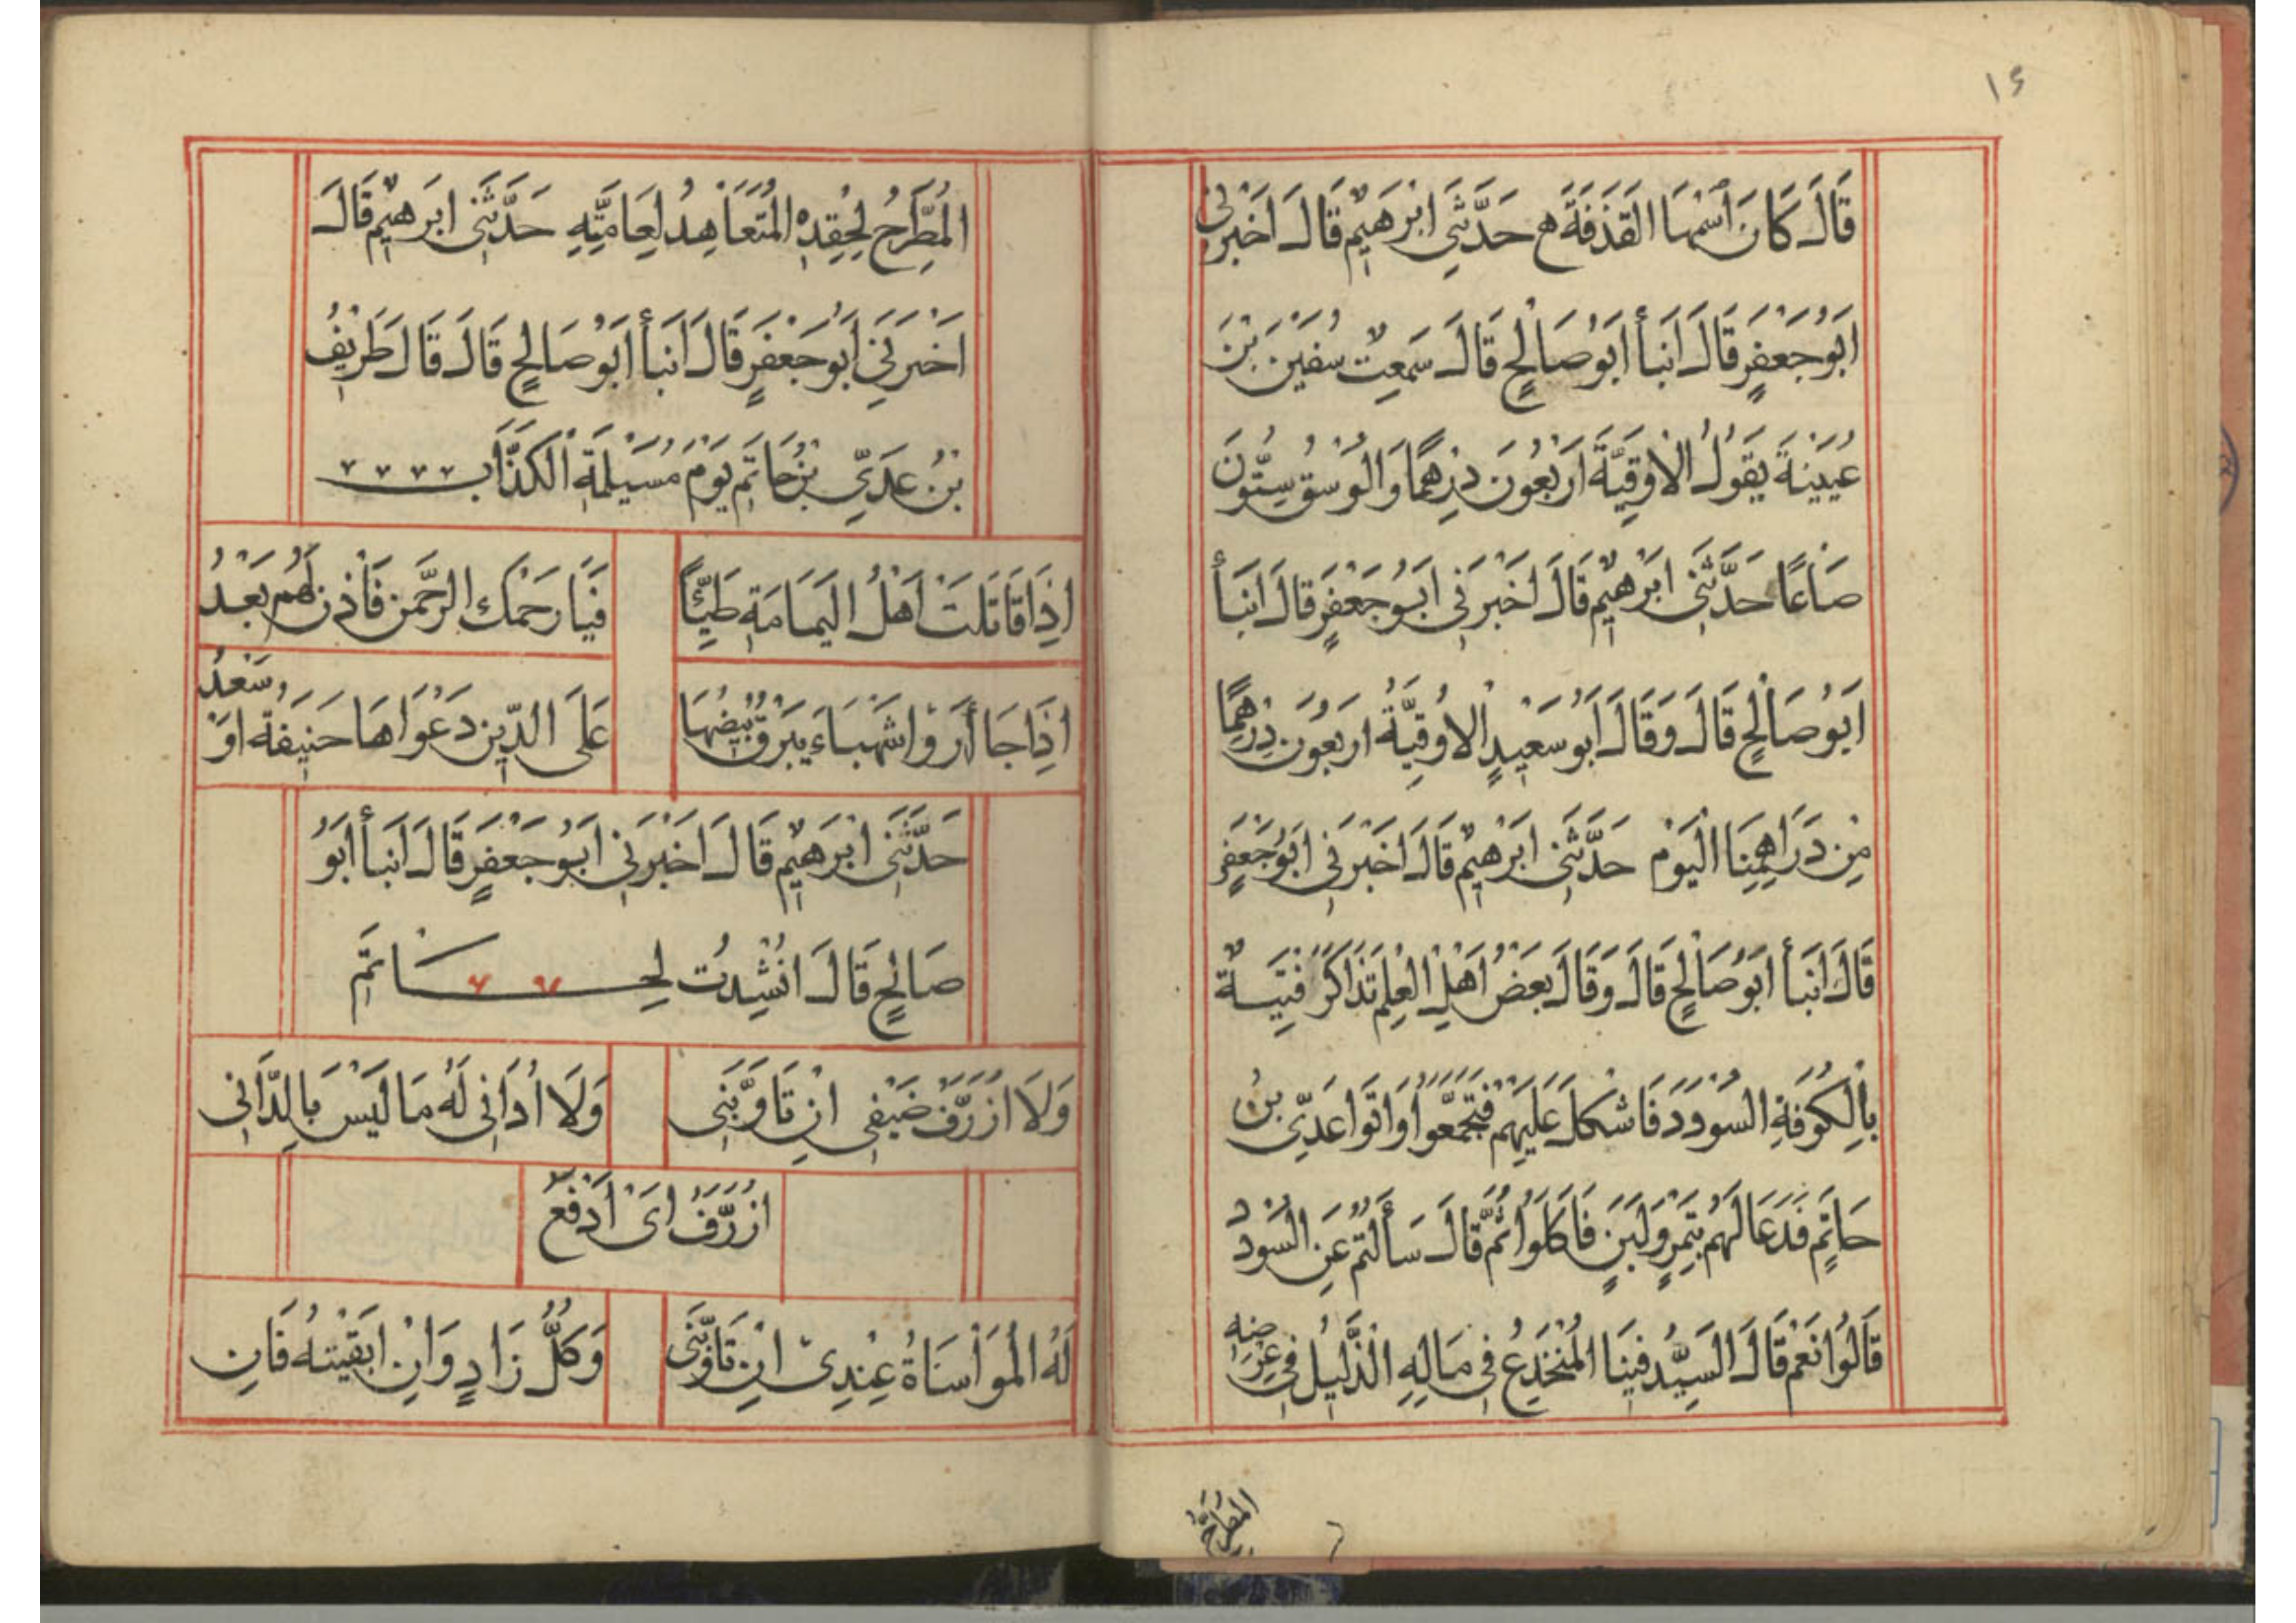 ١٤
قَالَ كَانَ اَسْمُهَا القَذَفَةَ ھ حَدَّثَنِى ابْرَهِيْمُ قَالَ اَخْبَرَنِى
ابَوُ جَعْفَرٍ قَالَ انَبَأ ابَوُ صَالِحٍ قَالَ سَمِعْتُ سُفْيَنَ بَنَ
عُيَيْنَةَ يَقُولُ الْاُوقِيَّةَ ارَبْعُونَ دِرْهَمًا وَالْوَسْقُ سِتُّونَ
صَاعًا حَدَّثَنِى ابْرَهِيْمُ قَالَ اخَبْرَنِى ابَوُ جَعْفَرٍ قَالَ انَبَأ
ابَوُ صَالِحٍ قَالَ وَقَالَ ابَوُ سَعِيْدٍ الاُوقِيَّةُ ارَبْعُونَ دِرْهَمًا
مِنْ دَرَاهِمِنَا اليَوْمَ حَدَّثَنِى ابْرَهِيْمُ قَالَ اَخْبَرَنِى ابَوُ جَعْفَرٍ
قَالَ انَبَأ ابَوُ صَالِحٍ قَالَ وَقَالَ بَعْضُ اَهْلِ العِلْمِ تَذَاكَرَ فِتْيَةٌ
بِالْكُوفَةِ السُّودَدَ فَاشْكَلَ عَلَيْهِمْ فَتَجَمَّعُوا وَاتَوا عَدِىَّ بنُ
حَاتِمٍ فَدَعَا لَهُمْ بِتَمْرٍ وَلَبَنٍ فَاكَلَوُا ثُمَّ قَالَ سَأَلْتُمْ عَنِ السُّودَدِ
قَالُوا نَعَمْ قَالَ السَيِّدُ فِيْنَا المُنْخَدِعُ فِى مَالِهِ الذَّلِيْلُ فِى عِرْضِهِ
المطرح
المُطَّرِحُ لِحِقْدِهْ المُتَعَاهِدُ لِعَامَّتِهِ حَدَّثَنِى ابْرَهِيْمُ قَالَ
اخَبْرَنِى ابَوُ جَعْفَرٍ قَالَ انَبَأ ابَوُ صَالِحٍ قَالَ قَالَ طَرِيْفُ
بْنُ عَدِىِّ بْنُ حَاتِمٍ يَوْمَ مُسَيْلَمِةَ الْكَذَّابِ
اِذَا قَاتَلَتْ اَهْلُ اليَمَامَةِ طَيِّئًا فَيَا رَحْمَكَ الرَّحْمَن فَأْذن لَهُمْ بَعْدُ
اِذَا جَاأرَوْا شَهْبَاءَ يَبْرُقُ بَيْضُهَا عَلَى الذِّيْنَ دَعْوَاهَا حَنِيْفَةُ اوَْ سَعْدُ
حَدَّثَنِى ابْرَهِيْمُ قَالَ اخَبْرَنِى ابَوُ جَعْفَرٍ قَالَ انَبَأ ابَوُ
صَالِحٍ قَالَ انْشِدْتُ لِحَاتَمِ
وَلَا ازُرِّفُ ضَيْفِى اِنْ تَاوَّبَنِى وَلَا اُدَانِى لَهُ مَا لَيْسَ بِالدَّانِى
ازُرِّفُ اىَْ اَدْفَعُ
لَهُ الْمُوَاسَاةُ عِنْدِىْ اِنْ تَاوَّبَنِى وَكُلُّ زَادٍ وَاِنْ ابَقْيَتْهُ فَانِ